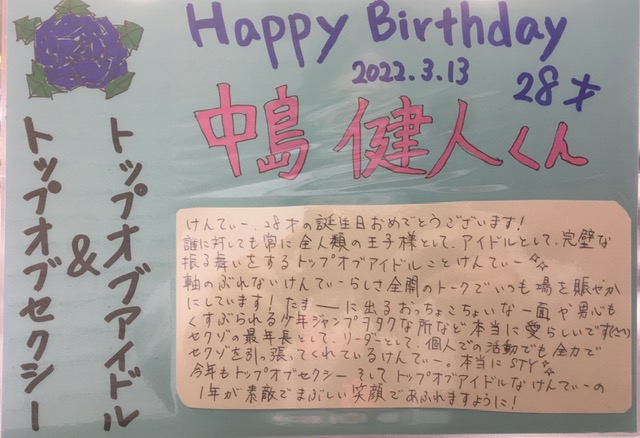 Happy Birthday
2022.3.13 28才
中島 健人くん
トップオブアイドル
&
トップオブセクシー
けんてぃー、28才の誕生日おめでとうございます!
誰に対しても常に全人類の王子様として、アイドルとして、完璧な
振る舞いをするトップオブアイドルことけんてぃー☆☆
軸のぶれないけんてぃーらしさ全開のトークでいつも場を賑やか
にしています!たまーーに出るおっちょこちょいな一面や男心も
くすぶられる少年ジャンプヲタクな所など本当に愛らしいです
セクゾの最年長として、リーダーとして、個人での活動でも全力で
セクゾを引っ張ってくれているけんてぃー。本当にSTY☆
今年もトップオブセクシー そして トップオブアイドルなけんてぃーの
1年が素敵でまぶしい笑顔であふれますように!